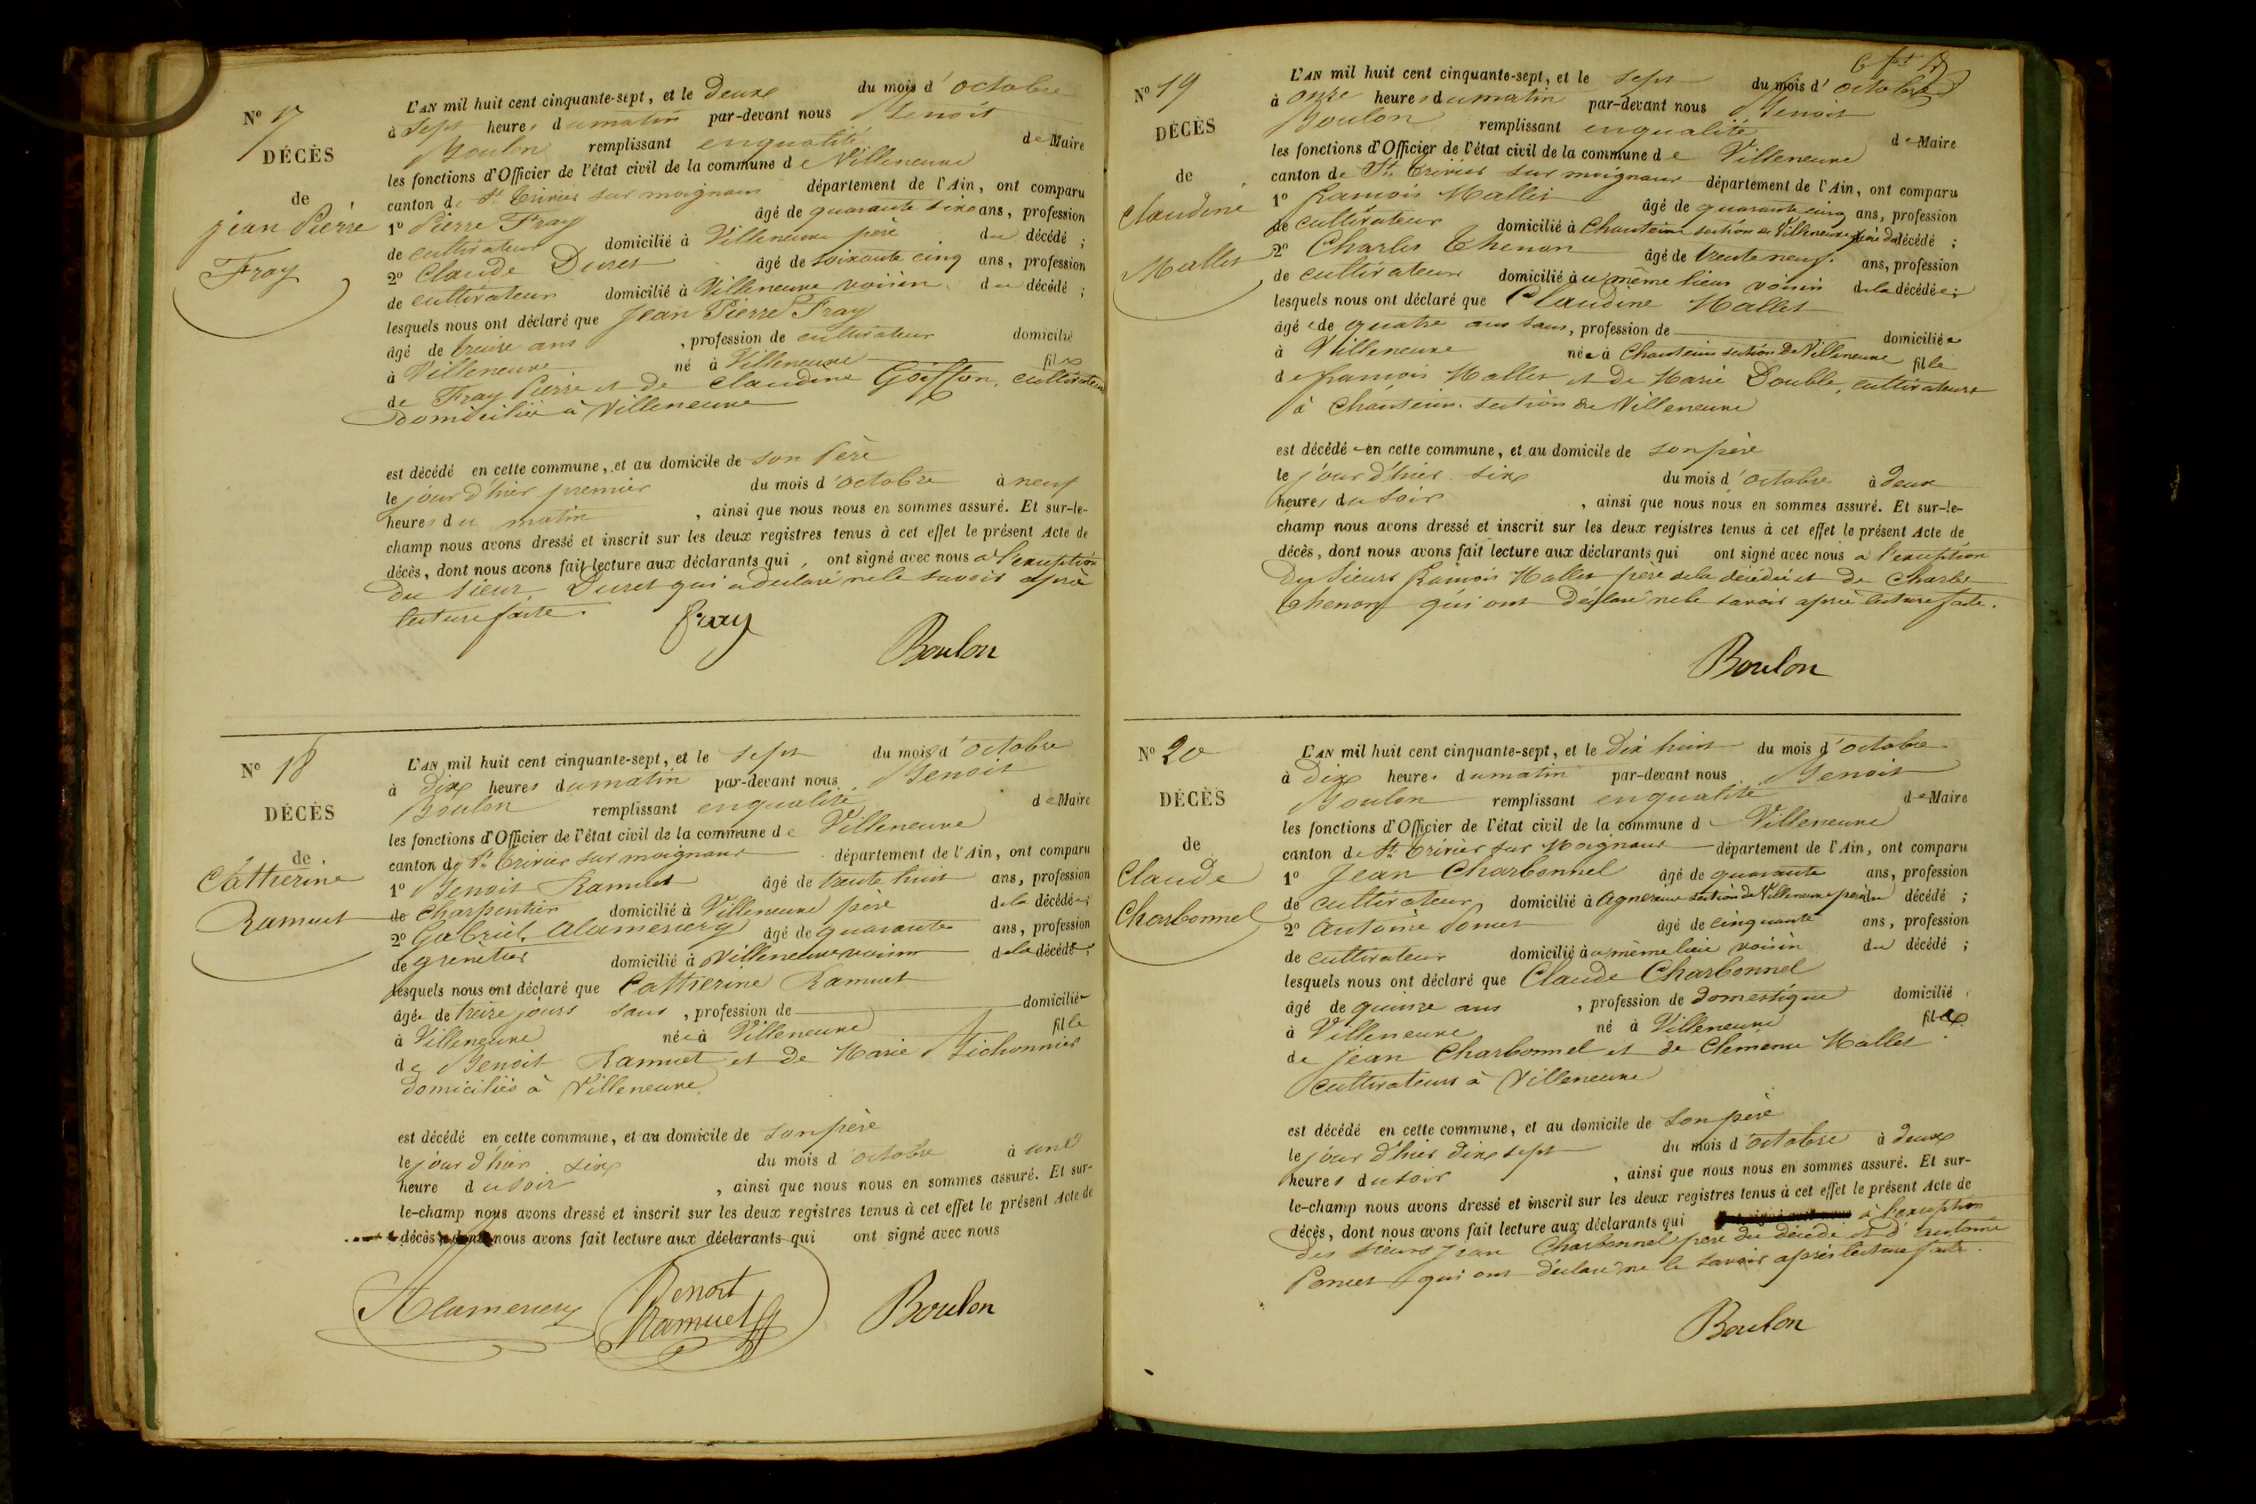 N° 17
DÉCÈS
de
jean Pierre
Fray
L'AN mil huit cent cinquante-sept, et le deux du mois d'octobre
à sept heures du matin par-devant nous Benoit
Boulon remplissant en qualité de Maire
les fonctions d'Officier de l'état civil de la commune de Villeneuve
canton de St. Trivier sur moignans département de l'Ain, ont comparu
1° Pierre Fray âgé de quarante six ans, profession
de cultivateur domicilié à Villeneuve père du décédé ;
2° Claude Duret âgé de soixante cinq ans, profession
de cultivateur domicilié à Villeneuve voisin du décédé ;
lesquels nous ont déclaré que Jean Pierre Fray
âgé de treize ans , profession de cultivateur domicilié
à Villeneuve né à Villeneuve fils
de Fray Pierre et de Claudine Goiffon, cultivateurs
Domiciliés à Villeneuve
est décédé en cette commune, et au domicile de son Père
le jour d'hier premier du mois d'octobre à neuf
heures du matin , ainsi que nous nous en sommes assuré. Et sur-le-
champ nous avons dressé et inscrit sur les deux registres tenus à cet effet le présent Acte de
décès, dont nous avons fait lecture aux déclarants qui ont signé avec nous à l'exception
du sieur Duret qui a déclaré ne le savoir après
lecture faite.
Fray
Boulon
N° 18
DÉCÈS
de
Catherine
Ramuet
L'AN mil huit cent cinquante-sept, et le sept du mois d'octobre
à Dix heures du matin par-devant nous Benoit
Boulon remplissant en qualité de Maire
les fonctions d'Officier de l'état civil de la commune de Villeneuve
canton de St. Trivier sur moignans département de l'Ain, ont comparu
1° Benoit Ramuet âgé de trente huit ans, profession
de Charpentier domicilié à Villeneuve père de la décédée ;
2° Gabriel Alamercery âgé de quarante ans, profession
de grènetier domicilié à Villeneuve voisin de la décédée ;
lesquels nous ont déclaré que Catherine Ramuet
âgée de treize jours sans , profession de domiciliée
à Villeneuve née à Villeneuve fille
de Benoit Ramuet et de Marie Michonnier
domiciliés à Villeneuve
est décédé en cette commune, et au domicile de son père
le jour d'hier six du mois d'octobre à une
heure du soir , ainsi que nous nous en sommes assuré. Et sur-
le-champ nous avons dressé et inscrit sur les deux registres tenus à cet effet le présent Acte de
décès dont nous avons fait lecture aux déclarants qui ont signé avec nous
Alamercery
Benoit
Ramuet
Boulon
N° 19
DÉCÈS
de
Claudine
Mallet
L'AN mil huit cent cinquante-sept, et le sept du mois d'octobre
à onze heures du matin par-devant nous Benoit
Boulon remplissant en qualité de Maire
les fonctions d'Officier de l'état civil de la commune de Villeneuve
canton de St. Trivier sur moignans département de l'Ain, ont comparu
1° François Mallet âgé de quarante cinq ans, profession
de cultivateur domicilié à Chanteins section de Villeneuve père de la décédé ;
2° Charles Thenon âgé de trente neuf ans, profession
de cultivateur domicilié au même lieu voisin de la décédée ;
lesquels nous ont déclaré que Claudine Mallet
âgée de quatre ans sans, profession de domiciliée
à Villeneuve née à Chanteins section De Villeneuve fille
de François Mallet et de Marie Double, cultivateurs
à Chanteins section de Villeneuve
est décédée en cette commune, et au domicile de son père
le jour d'hier six du mois d'octobre à deux
heures du soir , ainsi que nous nous en sommes assuré. Et sur-le-
champ nous avons dressé et inscrit sur les deux registres tenus à cet effet le présent Acte de
décès, dont nous avons fait lecture aux déclarants qui ont signé avec nous à l'exception
Des sieurs François Mallet père de la décédée et de Charles
Thenon qui ont déclaré ne le savoir après lecture faite.
Boulon
N° 20
DÉCÈS
de
Claude
Charbonnel
L'AN mil huit cent cinquante-sept, et le Dix huit du mois d'octobre
à Dix heures du matin par-devant nous Benoit
Boulon remplissant en qualité de Maire
les fonctions d'Officier de l'état civil de la commune de Villeneuve
canton de St. Trivier sur Moignans département de l'Ain, ont comparu
1° Jean Charbonnel âgé de quarante ans, profession
de cultivateur domicilié à Agnereins section de Villeneuve père du décédé ;
2° Antoine Poncet âgé de cinquante ans, profession
de cultivateur domicilié au même lieu voisin du décédé ;
lesquels nous ont déclaré que Claude Charbonnel
âgé de quinze ans , profession de domestique domicilié
à Villeneuve né à Villeneuve fils
de Jean Charbonnel et de Clemence Mallet
Cultivateurs à Villeneuve
est décédé en cette commune, et au domicile de son père
le jour d'hier dix sept du mois d'octobre à deux
heures du soir , ainsi que nous nous en sommes assuré. Et sur-
le-champ nous avons dressé et inscrit sur les deux registres tenus à cet effet le présent Acte de
décès, dont nous avons fait lecture aux déclarants qui à l'exception
Des sieurs Jean Charbonnel père du décédé et d'antoine
Poncet qui ont déclaré ne le savoir après lecture faite.
Boulon